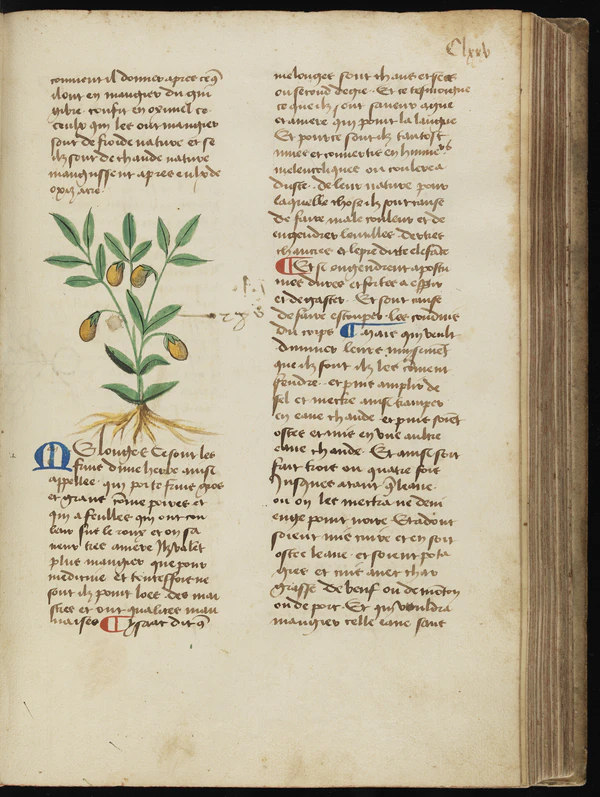 Clxxv
convient il donner apres ce q̄
dont en mangier du gin
gibre confit en oximel ce
ceulx qui les ont mangies
sont de froide nature et se
ilz sont de chaude nature
mangussent apres
oxizacre
Melonges Ce sont les
fruis d'une herbe ainsi
appellee qui porte fruis gros
et grans cōme poires et
qui a feulles qui ont cou
leur sus le roux et on sa
veur tres amere Ilz valēt
plus mangier que pour
medicine et toutesfois ne
sont ilz point loes des mai
stres et ont qualites mau
vaises ysaac dit q̄
melonges sont chaus et secs
ou second degre Et ce tesmoigne
ce que ilz sont saveur ague
et amere qui point la langue
Et pource sont ilz tantost
mues et convertis en humeurs
melencoliques ou colerea
duste de leur nature pour
laquelle chose ilz ont cause
de faire male couleur et de
engendrer lentilles
chancres et lepre dicte elefācie
Et se engendrent apostu
mes dures et fortes a
et degaster Et sont cause
de faire estouper les conduis
du corps Mais qui veult
dominer leurs nuysemēt
que ilz font ilz les cōvient
fendre et puis emplir de
sel et mectre ainsi tramper
en eaue chaude et puis soiēt
ostes et mis en une aultre
eaue chaude Et ainsi soit
fait trois ou quatre fois
Jusques atant q̄ leaue
ou on les mectra ne devi
engne point noire Et adont
soient mis cuire et en soit
ostee leaue et soient pota
gies et mis avec char
grasse de beuf ou de mōton
ou de porc Et qui vouldra
mangier celle eaue sans